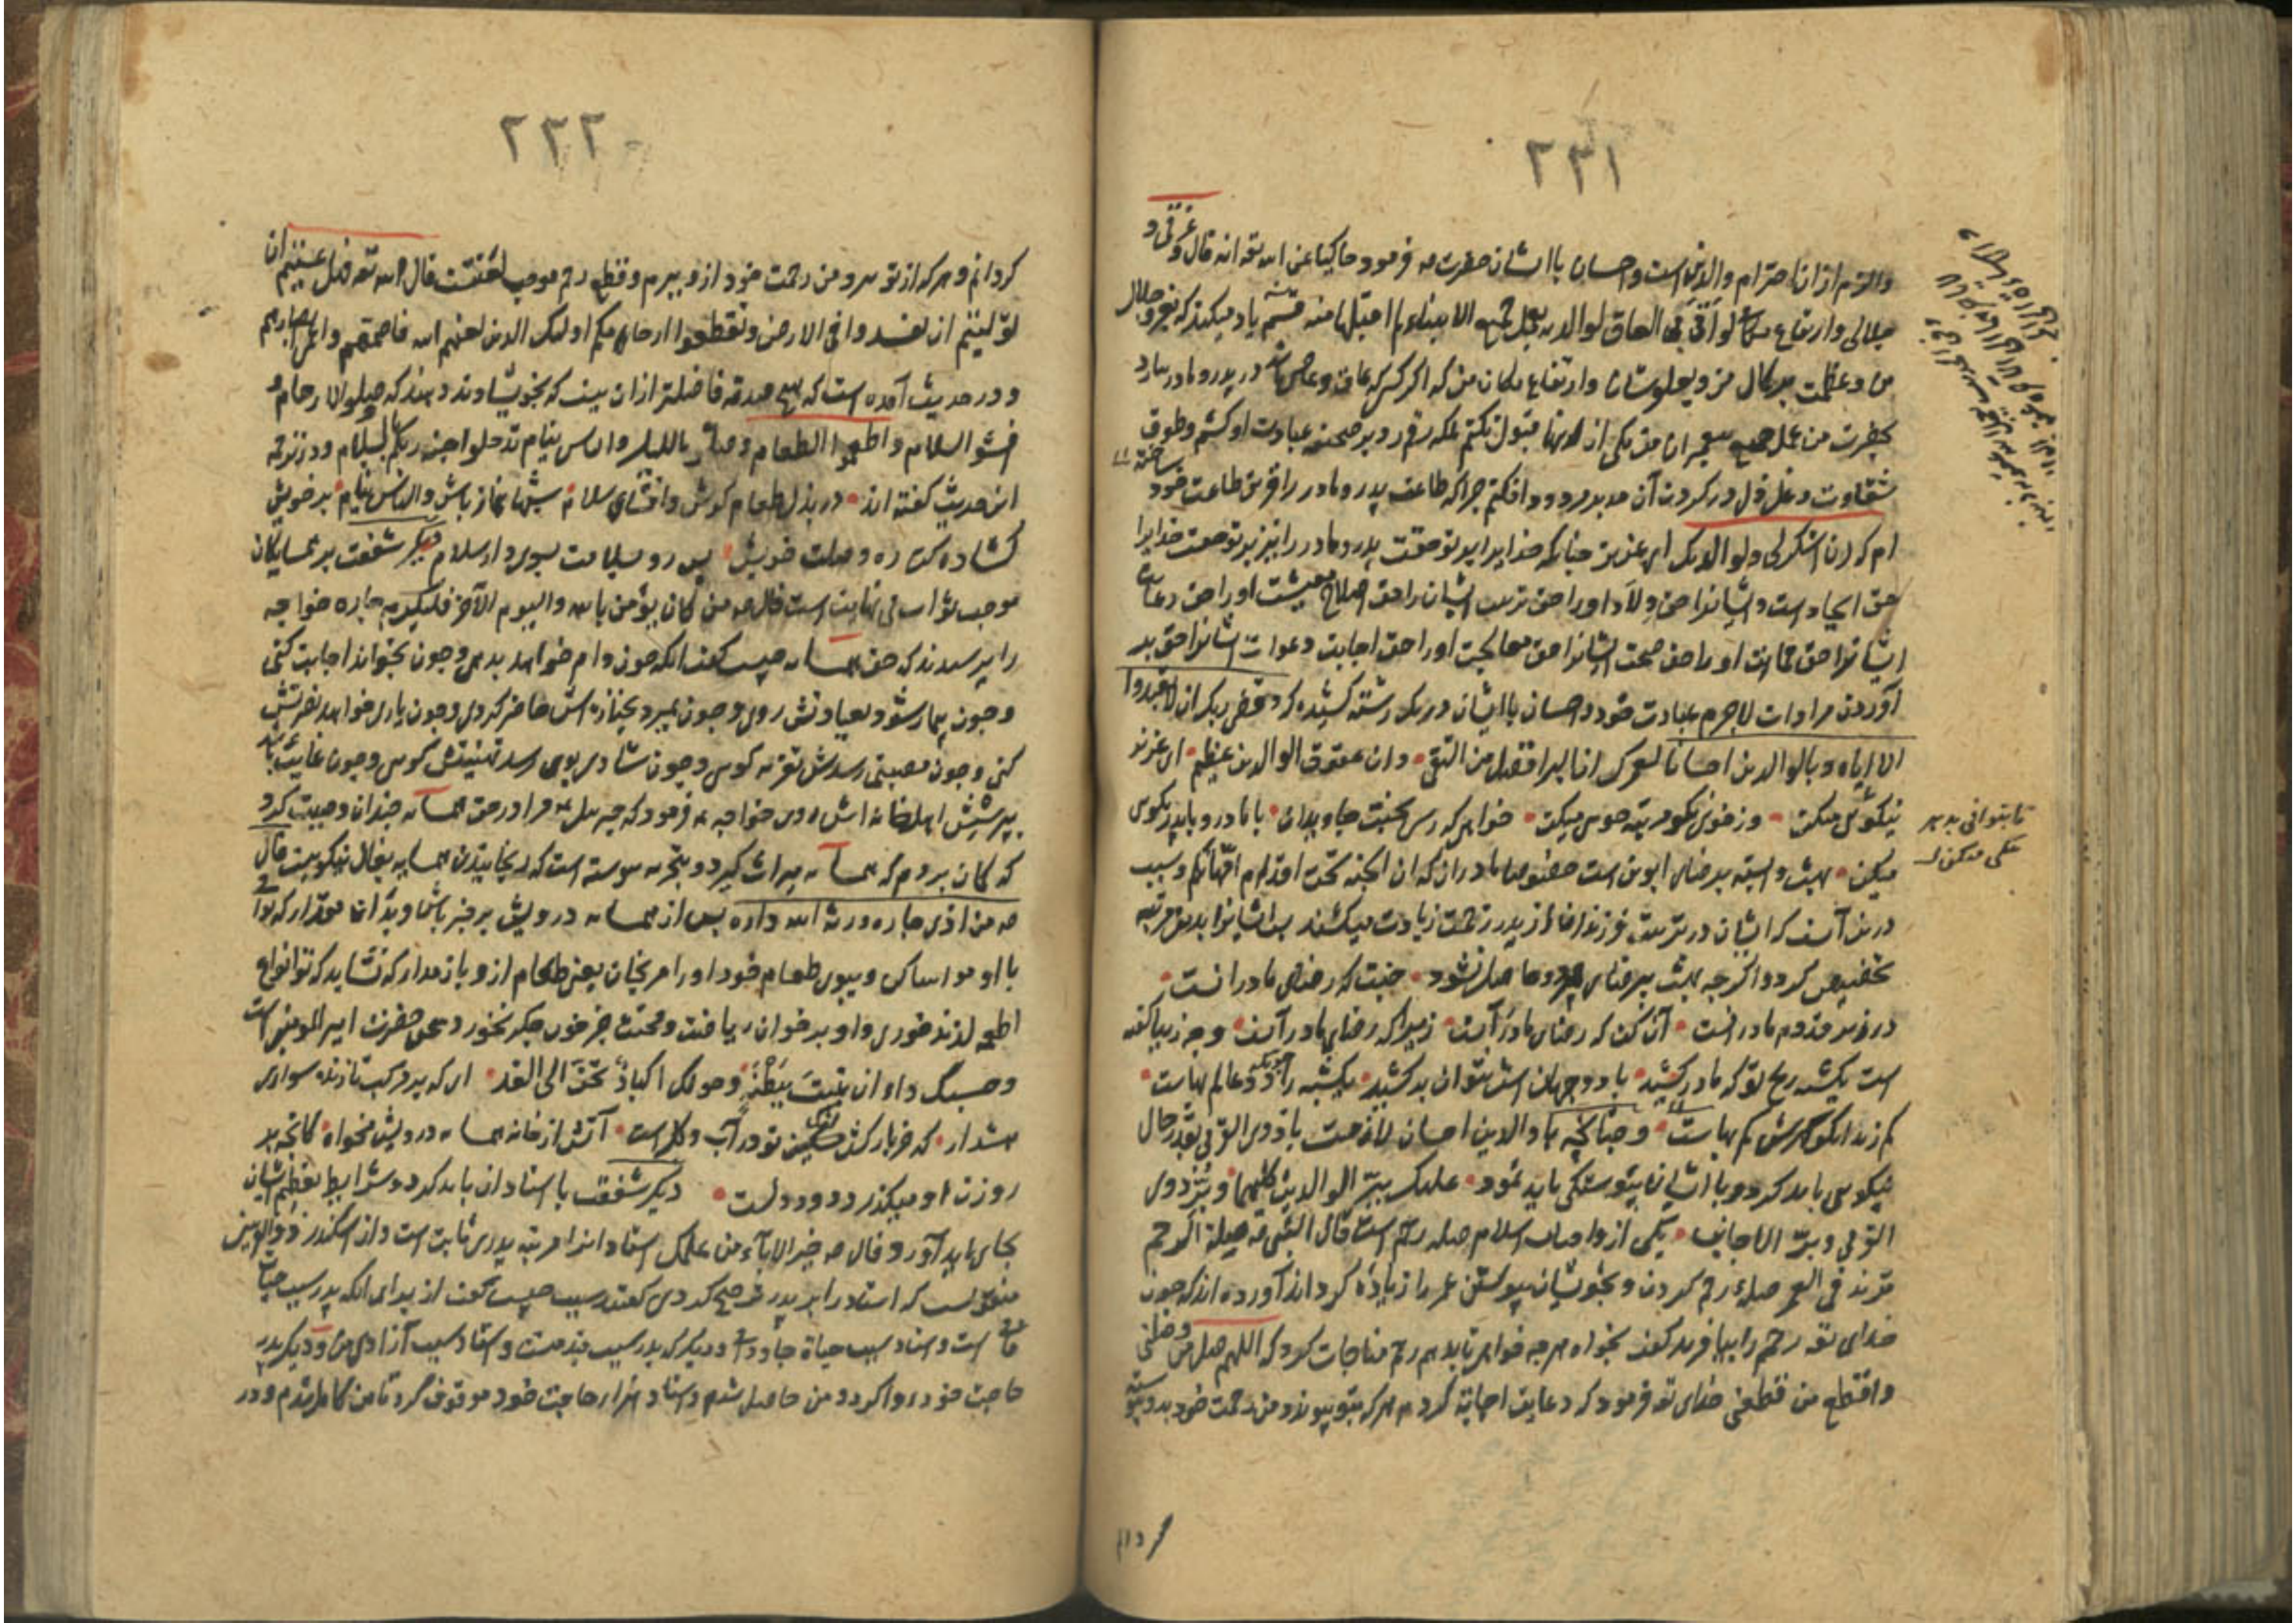 ۲۲۱
والزم از ان احترام والدین است و احسان با ایشان حضرت فرمود حاکیا عن الله تعه انه قال و عزتی و
جلالی وارتفاع مکانی لو اتی العاق لوالدیه بعمل جمیع الانبیاء ما اقبلها منه قسم یاد میکند که بعز و جلال
من و عظمت بر کمال من و بعلو شان و ارتفاع مکان من که اگر کسی که عاق و عاصی باشد در پدر و مادر بیارد
بحضرت من عمل جمیع پیغمبران من یکی از اینها قبول نکنم بلکه رقم رد بر صحیفه عبادت او کشم و طوق
شقاوت و غل ذل در گردن آن مدبر مردود افکنم چرا که طاعت پدر و مادر را قرین طاعت خود ساخته
ام که ان اشکر لی ولوالدیک ای عزیز چنانکه خدایرا بر تو حقست پدر و مادر را نیز بر تو حقست خدایرا
حق ایجاد است و ایشانرا حق ولاد او را حق تربیت ایشان را حق اصلاح معیشت او را حق رعایت
ایشانرا حق حمایت او را حق صحت ایشانرا حق معالجت او را حق اجابت دعوات ایشانرا حق بر
آوردن مرادات لاجرم عبادت خود و احسان با ایشان در یک رشته کشیده کرد و قضی ربک ان لا تعبدوا
الا ایاه و بالوالدین احسانا لعمرک ان البر افضل من التقی وان عقوق الوالدین عظیم ای عزیز
نیکوئی میکن وز خوی نکو مرتبه جوی میکن خواهی که رسی بجنت جاویدان با مادر و با پدر نکوی
میکن بهشت وابسته برضای ابوین است خصوصا مادران که ان الجنة تحت اقدام امهاتکم و سبب
درین آنست که ایشان در تربیت فرزند از پدر زحمت زیادت میکشند ایشانرا بدین مرتبه
تخصیص کرد و اگر چه بهشت بی رضای هر دو حاصل نشود جنت که رضای مادرانست
در زیر قدم مادرانست آن کن که رضای مادر آنست زیرا که رضای مادر آنست و چه زیبا گفته
است یکشبه رنج تو که مادر کشید با دو جهان است نتوان بر کشید یکشبه را دو عالم بهاست
کم زند انکو گهرش کم بهاست و چنانچه با والدین احسان لازمست با ذوی القربی بقدر حال
نیکویی باید کرد و با ایشان پیوستگی باید نمود علیک ببر الوالدین کلیهما و بر ذوی
القربی و بر الاجانب یکی از واجبات اسلام صله رحم است قال النبی صلة الرحم
تزید فی العمر صله رحم کردن و بخویشان پیوستن عمر را زیاده گرداند آورده اند که چون
خدای تعه رحم را بیافرید گفت بخواه هر چه خواهی تا بدهم رحم مناجات کرد که اللهم صل من وصلنی
واقطع من قطعنی خدای تعه فرمود که دعایت اجابت کردم هر که بتو پیوندد من رحمت خود بدو پیوسته
تا بتوانی بد
۲۲۲
گردانم و هر که از تو برد من رحمت خود ازو ببرم و قطع رحم موجب لعنتست قال الله تعه فهل عسیتم ان
تولیتم ان تفسدوا فی الارض وتقطعوا ارحامکم اولئک الذین لعنهم الله فاصمهم واعمی ابصارهم
و در حدیث آمده است که هیچ صدقه فاضلتر از ان نیست که بخویشاوند دهند که صلوا الارحام و
افشوا السلام و اطعموا الطعام وصلوا باللیل والناس نیام تدخلوا جنة ربکم بسلام و در ترجمه
این حدیث گفته اند در بذل طعام کوش و افشای سلام شبها بنماز باش والناس نیام بر خویش
گشاده کن ره وصلت خویش پس رو بسلامت بسوی دار سلام دیگر شفقت بر همسایگان
موجب ثواب بی نهایت است قال من کان یؤمن بالله والیوم الآخر فلیکرم جاره خواجه
را پرسیدند که حق همسایه چیست گفت انکه چون وام خواهد بدهی و چون بخواند اجابت کنی
و چون بیمار شود بعیادتش روی و چون بمیرد بجنازه اش حاضر گردی و چون یاری خواهد نصرتش
کنی و چون مصیبتی رسدش تعزیه گویی و چون شادی بوی رسد تهنیتش گویی و چون غایب باشد
بپرسش اهل خانه اش روی خواجه فرمود که جبرئیل مرا در حق همسایه چندان وصیت کرد
که گمان بردم که همسایه میراث گیرد و بتجربه پیوسته است که رنجانیدن همسایه بفال نیکو نیست قال
من اذی جاره ورثه الله داره پس از همسایه درویش بر خبر باش و بدان مقدار که توانی
با او مواسا کن و ببوی طعام خود او را مرنجان یعنی طعام ازو باز مدار که نشاید که تو انواع
اطعمه لذیذ خوری و او بر خوان ریاضت و محنت جز خون جگر نخورد حضرت امیر المومنین است
وحسبک داء ان تبیت ببطنة وحولک اکباد تحن الی القد ای که بر مرکب تازنده سواری
هشدار که خر خارکش مسکین تو در آب و گلست آتش از خانه همسایه درویش مخواه کانچه بر
روزن او میگذرد دود دلست دیگر شفقت با استادان باید کرد و شرایط تعظیم ایشان
بجای باید آورد قال خیر الاباء من علمک استادانرا مرتبه پدری ثابت است و از اسکندر ذو القرنین
منقولست که استاد را بر پدر ترجیح کردی گفتند سبب چیست گفت از برای انکه پدر سبب حیات
فانی است و استاد سبب حیاة جاودانی و دیگر که پدر سبب بند منست و استاد سبب آزادی من و دیگر پدر
حاجت خود روا کرد و من حاصل شدم و استاد هزار حاجت خود موقوف کرد تا من کامل شدم و در